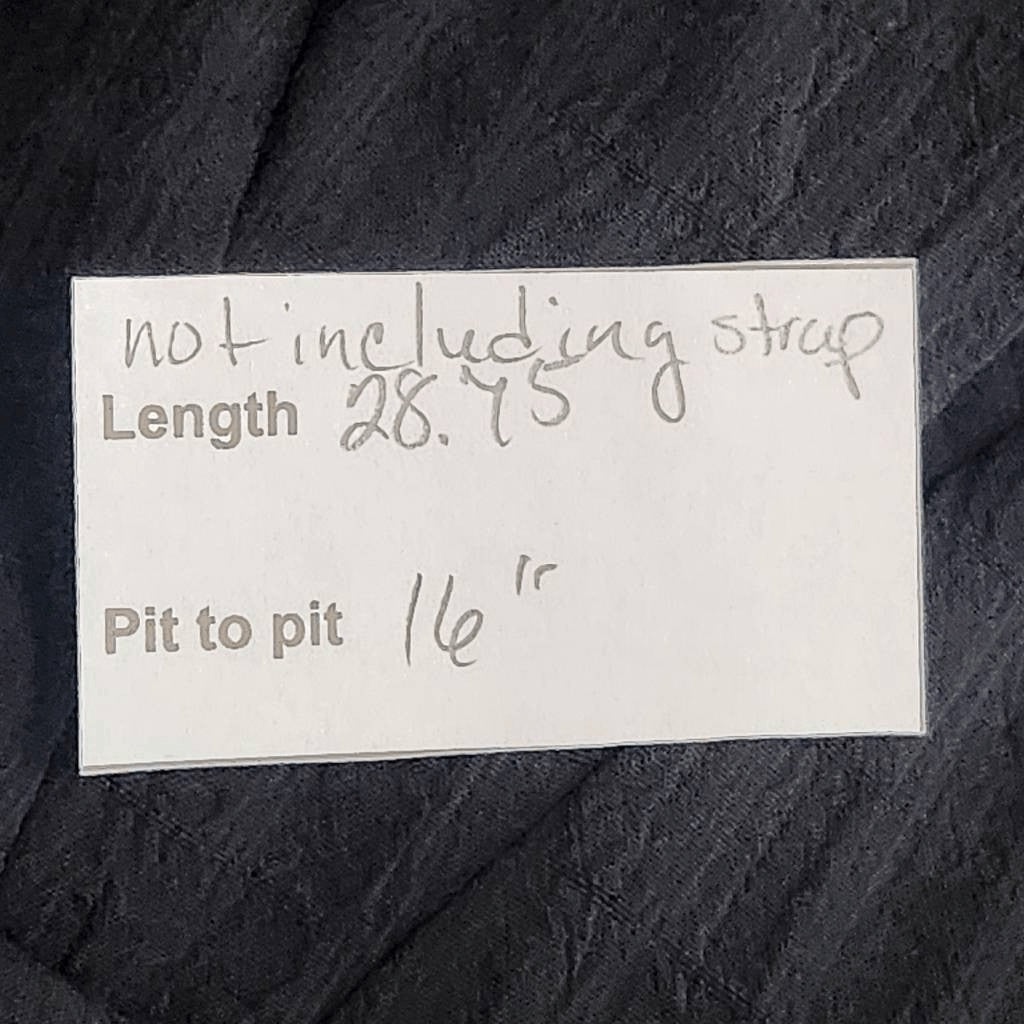 not including strap
Length 28.75
Pit to pit 16"